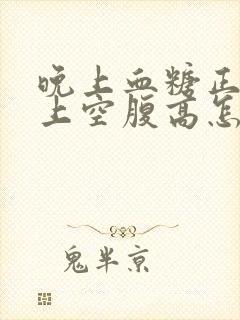 晚上血糖正
上空腹高怎
鬼半京